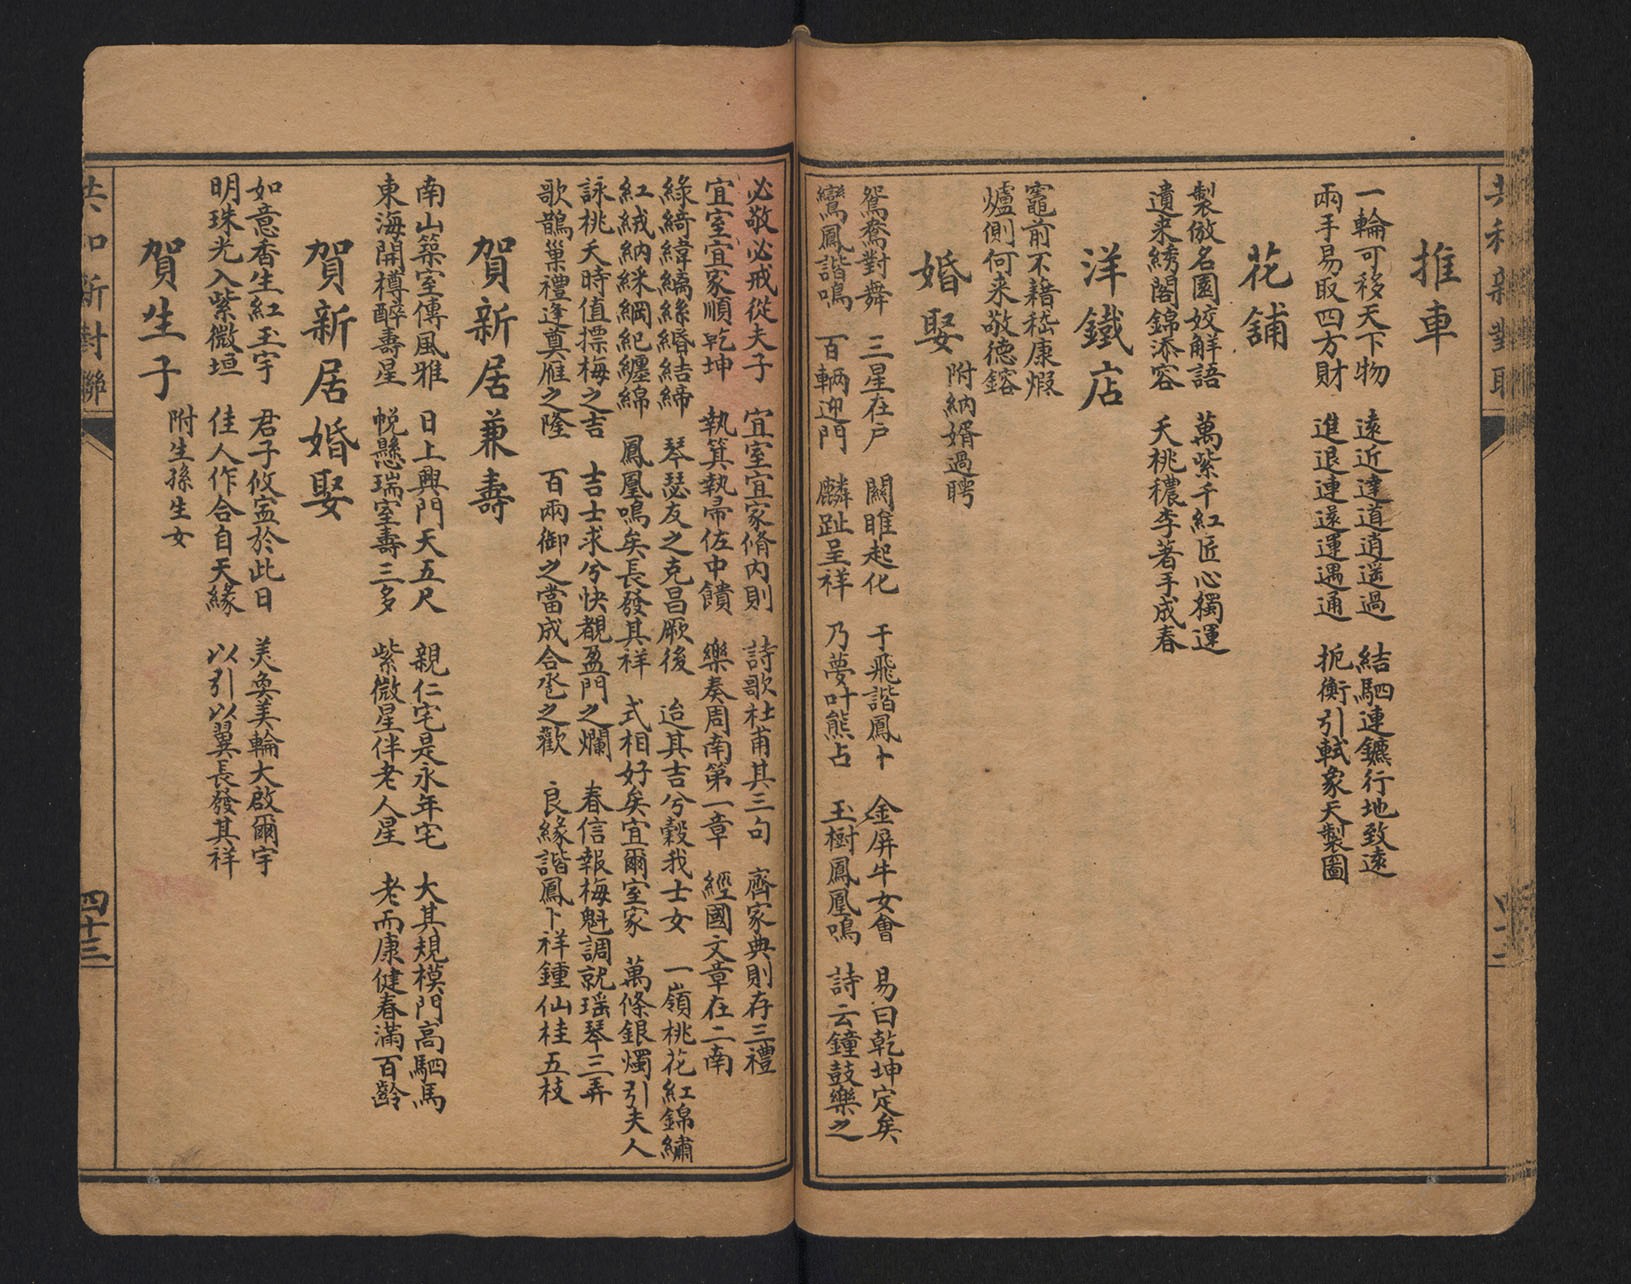 共和新對聯
推車
一輪可移天下物 遠近達道逍遥過 結駟連鑣行地致遠
兩手易取四方財 進退連還運遇通 扼衡引軾象天製圖
花舖
製倣名園姣解語 萬紫千紅匠心獨運
遺来綉閣錦添容 夭桃穠李著手成春
洋鐵店
竈前不藉嵇康煆
爐側何来敬德鎔
婚娶 附納婿過聘
鴛鴦對舞 三星在户 關雎起化 于飛諧鳳卜 金屏牛女會 易曰乾坤定矣
鸞鳳諧鳴 百輌迎門 麟趾呈祥 乃夢叶熊占 玉樹鳳凰鳴 詩云鐘鼓樂之
必敬必戒從夫子 宜室宜家脩內則 詩歌杜甫其三句 齊家典則存三禮
宜室宜家順乾坤 執箕執帚佐中饋 樂奏周南第一章 經國文章在二南
綠綺緯縭絲緍結締 琴瑟友之克昌厥後 迨其吉兮穀我士女 一嶺桃花紅錦繡
紅絨納綵綱紀纏綿 鳳凰鳴矣長發其祥 式相好矣宜爾室家 萬條銀燭引夫人
詠桃夭時值摽梅之吉 吉士求兮快覩盈門之爛 春信報梅魁調就瑶琴三弄
歌鵲巢禮逢奠雁之隆 百兩御之當成合卺之歡 良緣諧鳳卜祥鍾仙桂五枝
賀新居兼壽
南山築室傳風雅 日上興門天五尺 親仁宅是永年宅 大其規模門高駟馬
東海開樽醉壽星 悅懸瑞室壽三多 紫微星伴老人星 老而康健春滿百齡
賀新居婚娶
如意香生紅玉宇 君子攸寍於此日 美奐美輪大啟爾宇
明珠光入紫微垣 佳人作合自天緣 以引以翼長發其祥
賀生子 附生孫生女
共和新對聯
四十三